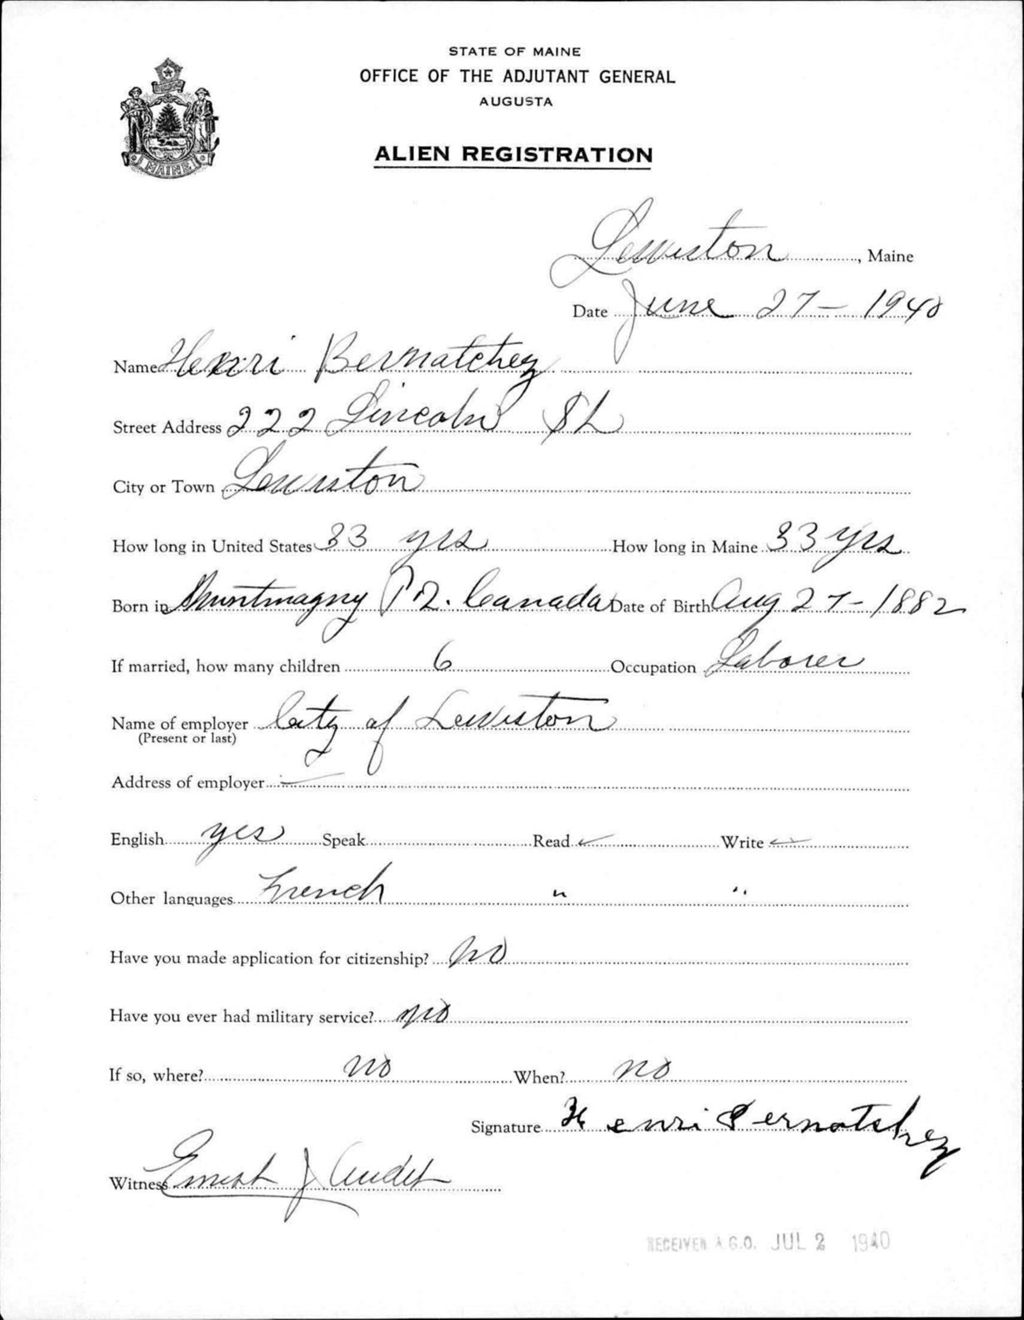 STATE OF MAINE
OFFICE OF THE ADJUTANT GENERAL
AUGUSTA
MAINE
ALIEN REGISTRATION
Lewiston, Maine
Date June 27 - 1940
Name Henri Bernatchez
Street Address 222 Lincoln St
City or Town Lewiston
How long in United States 33 yrs How long in Maine 33 yrs
Born in Montmagny P. Q. Canada Date of Birth Aug 27 - 1882
If married, how many children 6 Occupation Laborer
Name of employer City of Lewiston
(Present or last)
Address of employer —
English yes Speak Read ✓ Write ✓
Other languages French " "
Have you made application for citizenship? No
Have you ever had military service? no
If so, where? no When? no
Signature Henri Bernatchez
Witness Ernest J Audet
RECEIVED A.G.O. JUL 2 1940